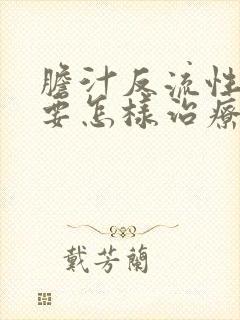 膽汁反流性
要怎樣治療
戴芳蘭